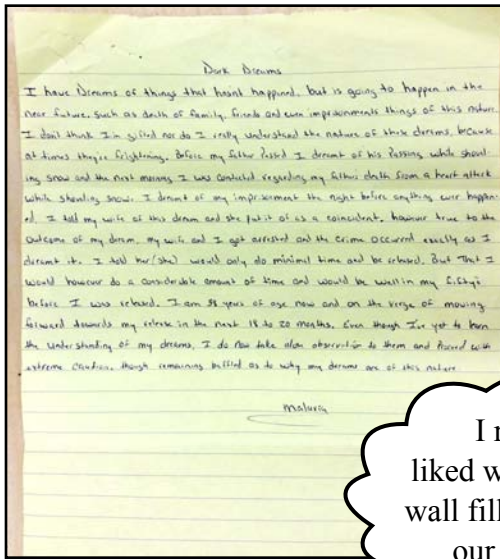 Dark Dreams
I have Dreams of things that hasnt happened, but is going to happen in the
near future. Such as death of family, friends and even imprisonments things of this nature.
I don't think I'm gifted nor do I really understand the nature of these dreams, because
at times they're frightening. Before my father Passed I dreamt of his Passing while shovel-
ing snow and the next morning I was contacted regarding my fathers death from a heart attack
while shoveling snow. I dreamt of my imprisonment the night before anything ever happen-
ed. I told my wife of this dream and she put it of as a coincident, however true to the
outcome of my dream, my wife and I got arrested and the crime occurred exactly as I
dreamt it. I told her (she) would only do minimal time and be released. But That I
would however do a considerable amount of time and would be well in my fifty's
before I was released. I am 58 years of age now and on the verge of moving
forward towards my release in the next 18 to 20 months. Even though I've yet to
the understanding of my dreams, I do now take observation to them and Proceed with
extreme Caution, though remaining baffled as to why my dreams are of this nature

I
liked
wall
our